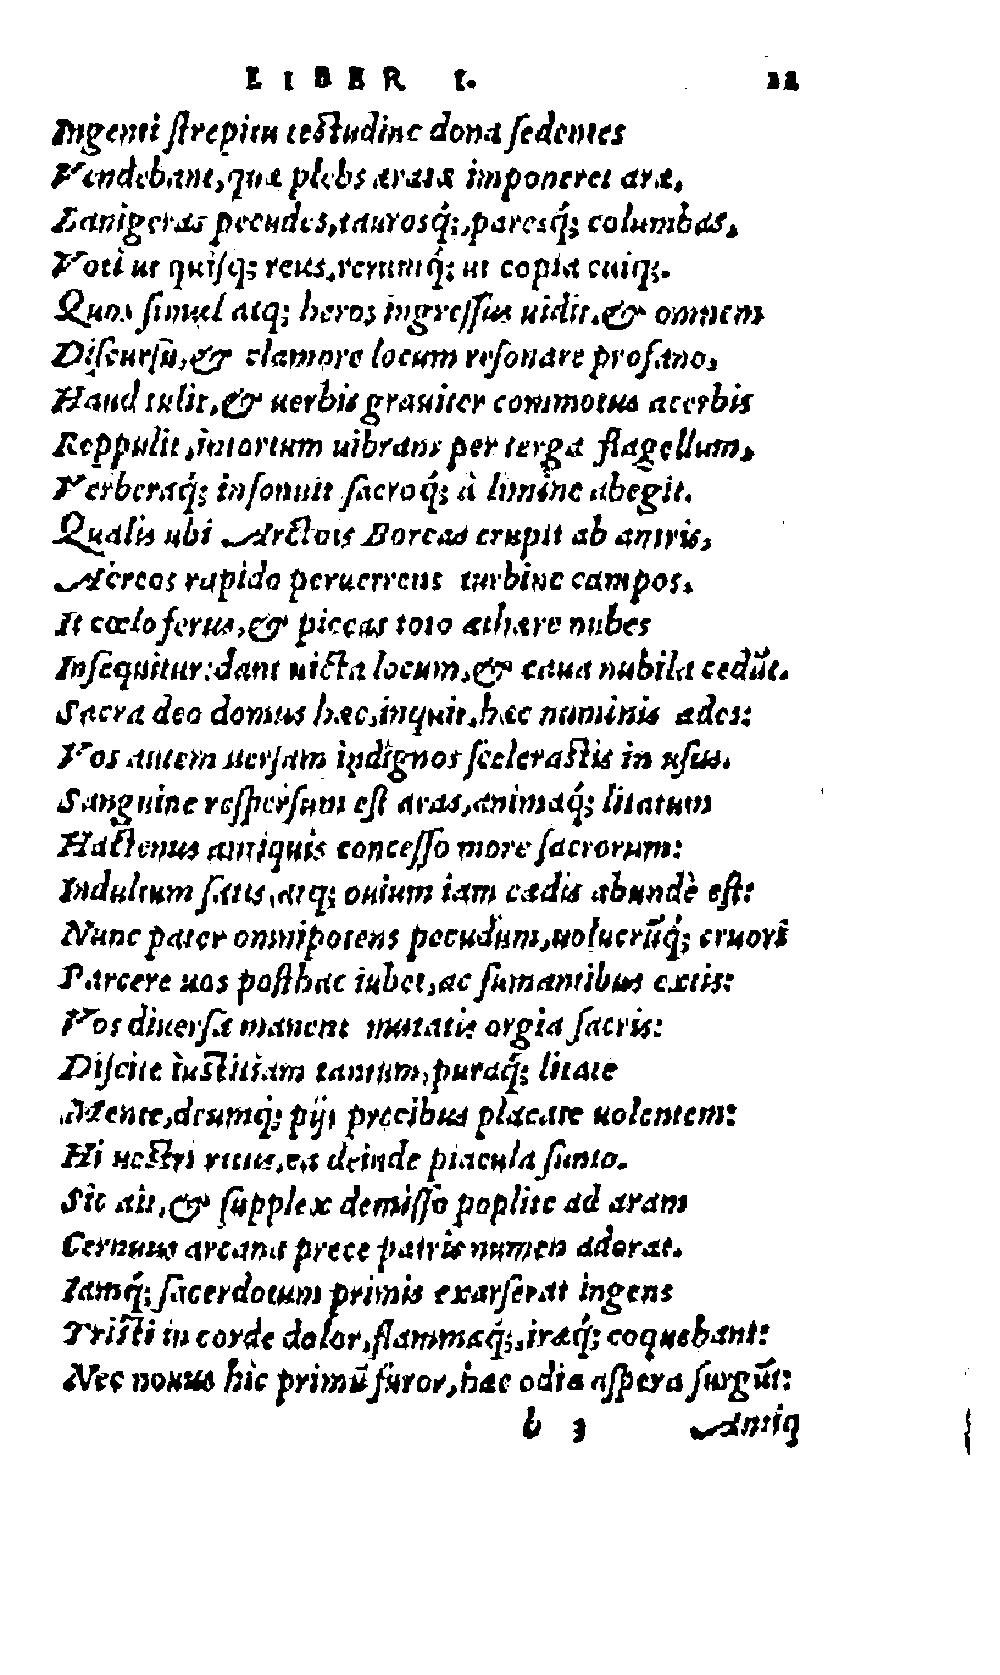 LIBER I. 11
Ingenti ſtrepitu teſtudine dona ſedentes
Vendebant, quæ plebs aratæ imponeret aræ,
Lanigeras pecudes, taurosq́;, paresq́; columbas,
Voti ut quiſq; reus, rerumq́; ut copia cuiq;.
Quos ſimul atq; heros ingreſſus uidit, & omnem
Diſcurſu, & clamore locum reſonare profano,
Haud tulit, & uerbis grauiter commotus acerbis
Reppulit, intortum uibrans per terga flagellum,
Verberaq́; inſonuit ſacroq́; à limine abegit.
Qualis ubi Arctois Boreas erupit ab antris,
Aëreos rapido peruerrens turbine campos.
It cœlo ferus, & piceas toto æthere nubes
Inſequitur: dant uicta locum, & caua nubila cedũt.
Sacra deo domus hæc, inquit, hæc numinis ædes:
Vos autem uerſam indignos ſceleraſtis in uſus.
Sanguine reſperſum eſt aras, animaq́; litatum
Hactenus antiquis conceſſo more ſacrorum:
Indultum ſatis, atq; ouium iam cædis abundè eſt:
Nunc pater omnipotens pecudum, uolucrũq́; cruori
Parcere uos poſthac iubet, ac fumantibus extis:
Vos diuerſa manent mutatis orgia ſacris:
Diſcite iuſtitiam tantum, puraq́; litate
Mente, deumq́; pij precibus placare uolentem:
Hi ueſtri ritus, ea deinde piacula ſunto.
Sic ait, & ſupplex demiſſo poplite ad aram
Cernuus arcana prece patris numen adorat.
Iamq́; ſacerdotum primis exarſerat ingens
Triſti in corde dolor, flammæq́;, iræq́; coquebant:
Nec nouus hic primũ furor, hæc odia aſpera ſurgũt:
b 3 Antiq